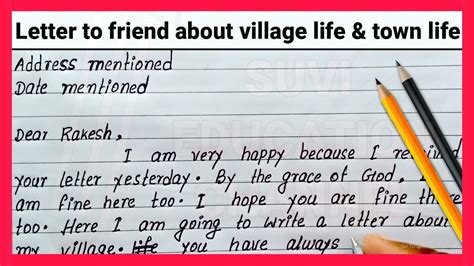 Letter to friend about village life & town life
Address mentioned
Date mentioned
SUVI
EDUCATION
Dear Rakesh,
I am very happy because I
your letter yesterday. By the grace of God,
am fine here too. I hope you are fine there
too. Here I am going to write a letter about
my village. life you have always